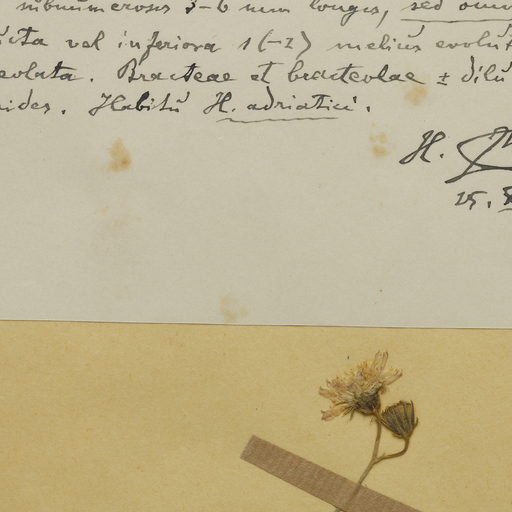 subnumerosis 3-6 mm longis, sed omn
vel inferiora 1(-2) melius evolut
evoluta. Bracteae et bracteolae ± dilu
ides. Habitu H. adriatici.
H.
25.